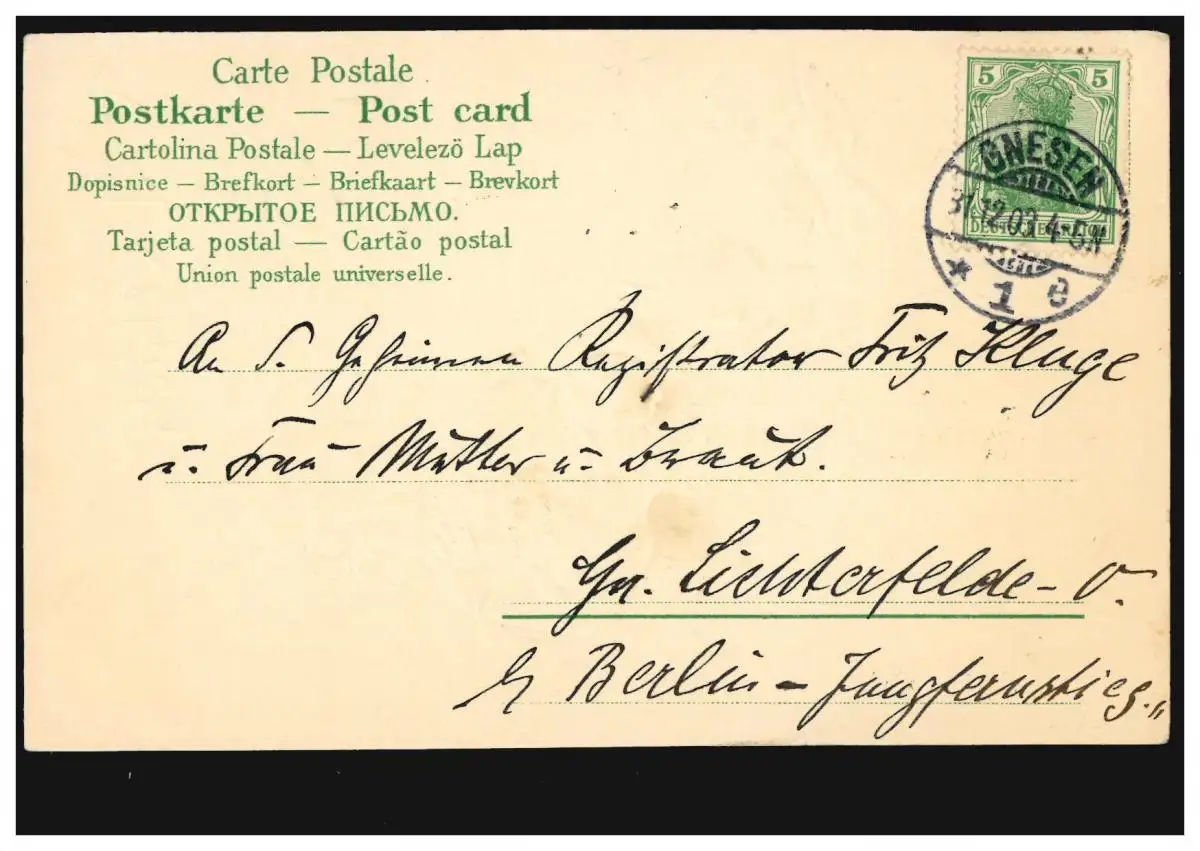 Carte Postale
Postkarte — Post card
Cartolina Postale — Levelezö Lap
Dopisnice — Brefkort — Briefkaart — Brevkort
ОТКРЫТОЕ ПИСЬМО.
Tarjeta postal — Cartão postal
Union postale universelle.
5 5
DEUTSCHES REICH
GNESEN
31.12.03. 4-5N
* 1 e
An d. Geheimen Registrator Fritz Kluge
u. Frau Mutter u. Braut.
Gr. Lichterfelde-O.
b/ Berlin - Jungfernstieg.